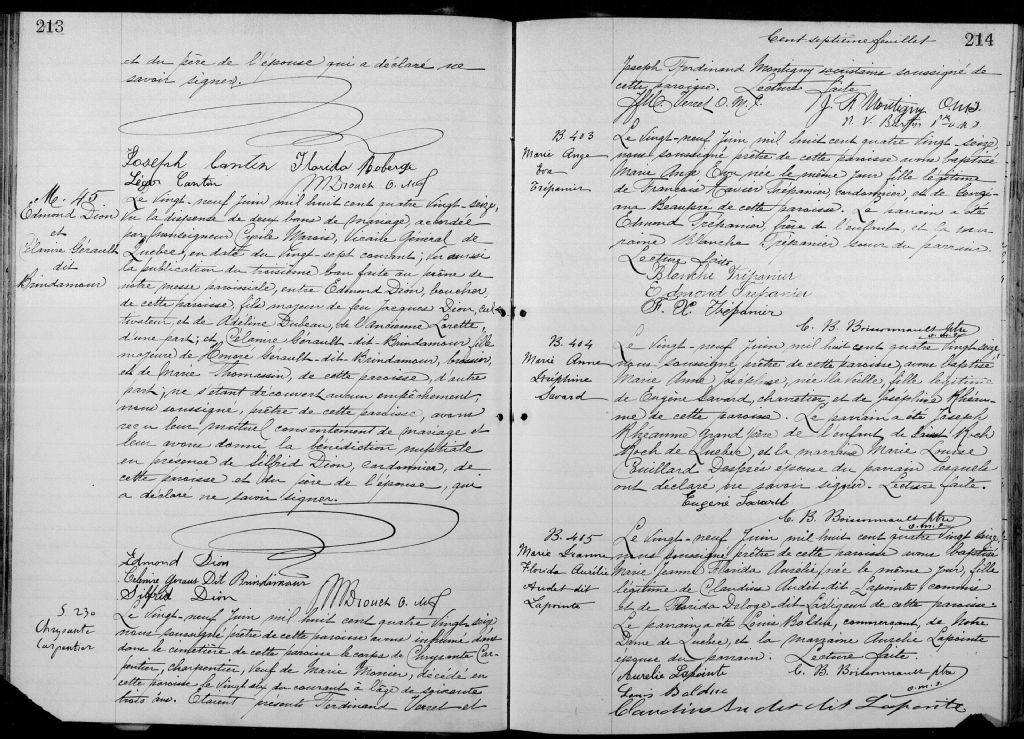 213
et du père de l'épouse qui a déclaré ne
savoir signer.
Joseph Cantin Florida Roberge
Léger Cantin
M. 45
Edmond Dion
et
Célanire Gérault
dit
Brindamour
Le vingt-neuf Juin mil huit cent quatre vingt-seize,
Vu la dispense de deux bans de mariage accordée
par Monseigneur Cyrille Marois, Vicaire Général de
Québec, en date du vingt-sept courant; Vu aussi
la publication du troisième ban faite au prône de
notre messe paroissiale, entre Edmond Dion, boucher
de cette paroisse, fils majeur de feu Jacques Dion, cul-
tivateur, et de Adéline Dubeau, de l'Ancienne Lorette,
d'une part; et Célanire Gérault-dit-Brindamour, fille
majeure de Honoré Gérault-dit-Brindamour,
et de Marie Thomassin, de cette paroisse, d'autre
part; ne s'étant découvert aucun empêchement,
nous soussigné, prêtre de cette paroisse, avons
reçu leur mutuel consentement de mariage et
leur avons donné la bénédiction nuptiale
en présence de Silfrid Dion, cordonnier, de
cette paroisse et du père de l'épouse, qui
a déclaré ne savoir signer.
Edmond Dion
Célanire Geraus Dit Brindamour
Silfrid Dion
S 230
Chrysante
Carpentier
Le vingt-neuf Juin mil huit cent quatre vingt seize
nous soussigné prêtre de cette paroisse avons inhumé dans
dans le cimetière de cette paroisse le corps de Chrysante Car-
pentier, charpentier, veuf de Marie Monier, décédé en
cette paroisse le vingt six du courant à l'âge de soixante
trois ans. Etaient présents Ferdinand Verret et
Cent septième feuillet
214
Joseph Ferdinand Montigny soussigné de
cette paroisse. Lecture faite
J. F. Montigny
B 403
Marie Ange
Eva
Trépanier
Le vingt-neuf Juin mil huit cent quatre vingt-seize,
nous soussigné prêtre de cette paroisse avons baptisé
Marie Ange Eva née le même jour fille légitime
de François Xavier Trépanier, cordonnier, et de Georgi-
ana Beaupré de cette paroisse. Le parrain a été
Edmond Trépanier, frère de l'enfant, et la mar-
raine Blanche Trépanier soeur du parrain.
Lecture faite
Blanche Trépanier
Edmond Trépanier
F. X. Trépanier
C. B. Boissonnault ptre
o.m.i
B. 404
Marie Anne
Joséphine
Savard
Le vingt-neuf Juin mil huit cent quatre vingt-seize,
nous soussigné prêtre de cette paroisse, avons baptisé
Marie Anne Joséphine, née la veille, fille légitime
de Eugène Savard, charretier, et de Joséphine Rhéau-
me de cette paroisse. Le parrain a été Joseph
Rhéaume grand père de l'enfant de Saint Roch
Roch de Québec, et la marraine Marie Louise
Couillard Després épouse du parrain lesquels
ont déclaré ne savoir signer. Lecture faite.
Eugène Savard
C. B. Boissonnault ptre
o.m.i
B. 405
Marie Jeanne
Florida Aurélie
Audet dit
Lapointe
Le vingt-neuf Juin mil huit cent quatre vingt seize
nous soussigné prêtre de cette paroisse avons baptisé
Marie Jeanne Florida Aurélie née le même jour, fille
légitime de Claudius Audet dit Lapointe commis
et de Florida Deloge dit Larigeur de cette paroisse.
Le parrain a été Louis Bolduc, commerçant, de Notre
Dame de Québec, et la marraine Aurélie Lapointe
épouse du parrain. Lecture faite
Aurélie Lapointe
C. B. Boissonnault ptre
o.m.i
Louis Bolduc
Claudius Audet dit Lapointe